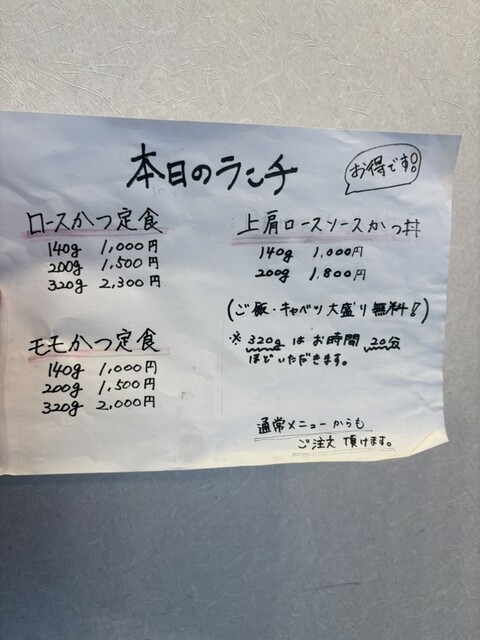 本日のランチ
お得です!!
ロースかつ定食
140g 1,000円
200g 1,500円
320g 2,300円
モモかつ定食
140g 1,000円
200g 1,500円
320g 2,000円
上肩ロースソースかつ丼
140g 1,000円
200g 1,800円
(ご飯・キャベツ大盛り無料!!)
※ 320gはお時間20分
ほどいただきます。
通常メニューからも
ご注文頂けます。